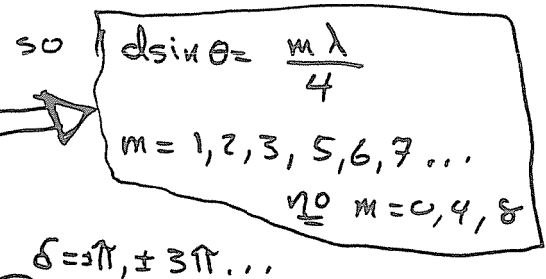 so dsin θ= mλ/4
m = 1,2,3, 5,6,7...
no m=0,4,8
δ=±π, ± 3π...